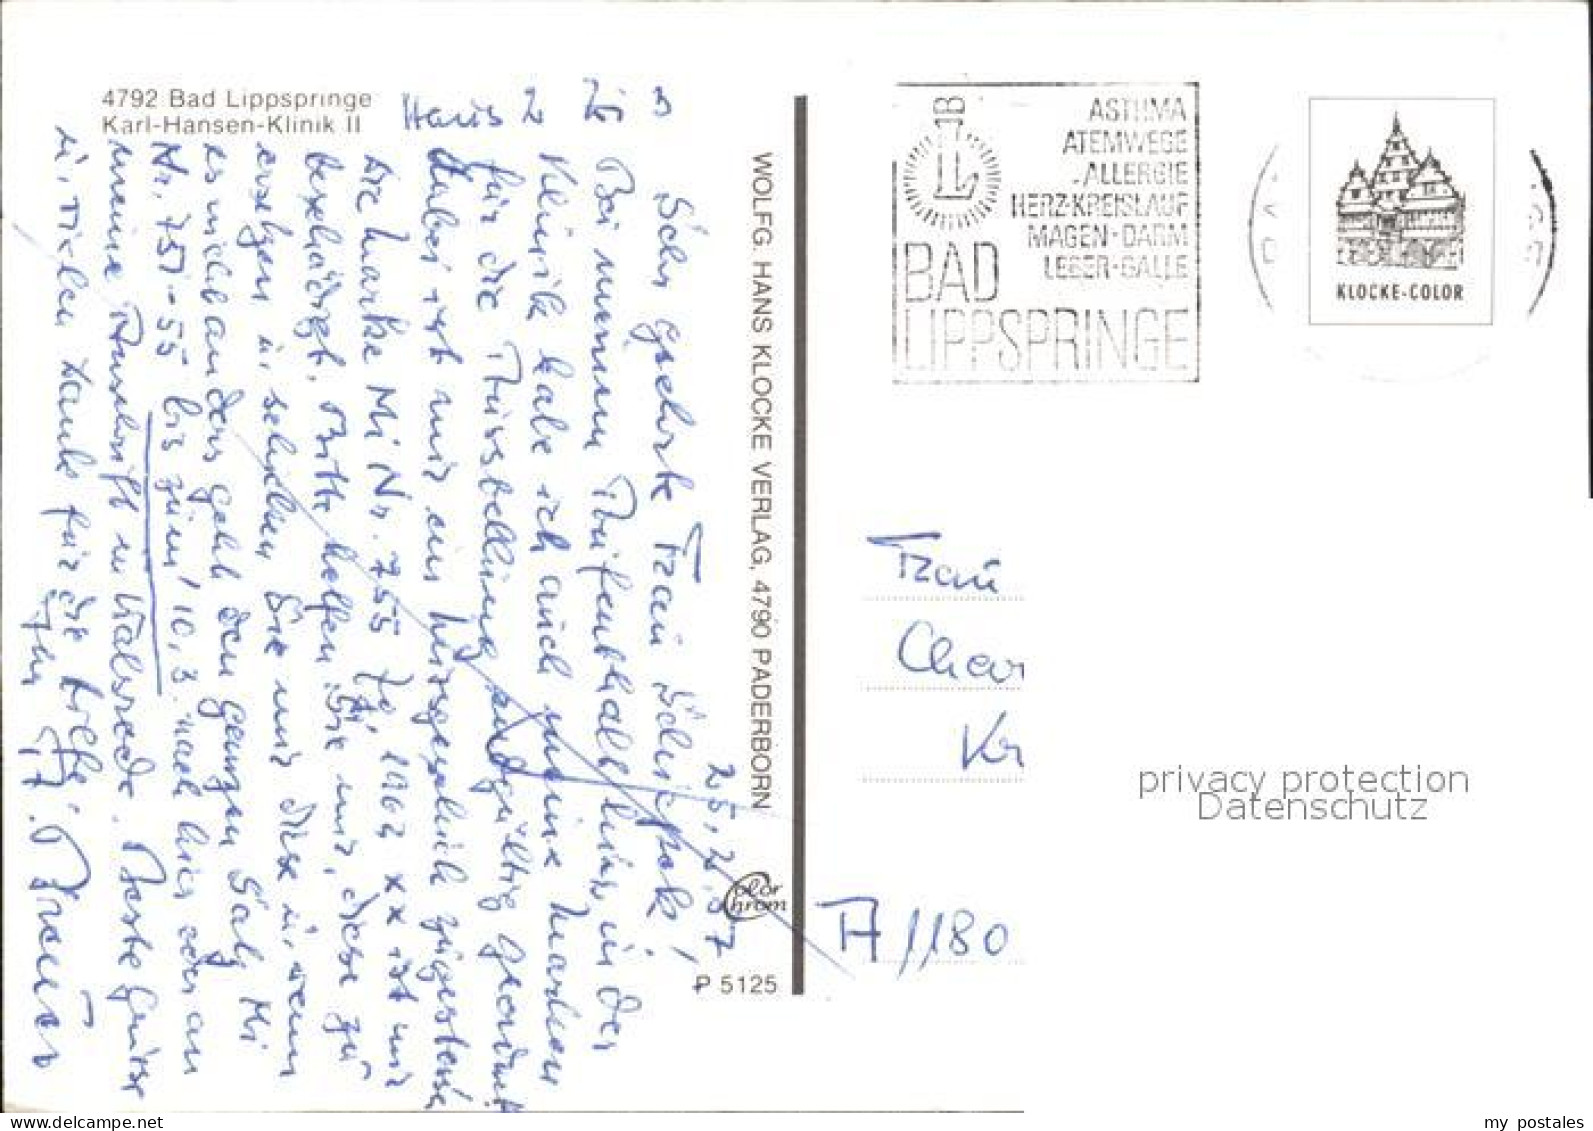 4792 Bad Lippspringe
Karl-Hansen-Klinik II
Haus 2
25.2.87
Sehr geehrte Frau
Bei meinem Aufenthalt hier in der
Klinik habe ich auch meine Marken
für die Ausstellung endgültig geordnet
Dabei ist mir ein
die Marke Mi Nr. 755 Jg 1962 xx ist mir
beschädigt. Bitte helfen Sie mir, diese zu
ersetzen u. schicken Sie mir diese u. wenn
es nicht anders geht den ganzen Satz Mi
Nr. 751-55 bis zum 10.3. nach hier oder an
meine Anschrift in Walsrode. Beste Grüsse
u. vielen Dank für die Hilfe.
Ihr
WOLFG. HANS KLOCKE VERLAG, 4790 PADERBORN
color
chrom
P 5125
ASTHMA
ATEMWEGE
ALLERGIE
HERZ-KREISLAUF
MAGEN-DARM
LEBER-GALLE
BAD
LIPPSPRINGE
KLOCKE-COLOR
Frau
Kr
A 1180
privacy protection
Datenschutz
www.delcampe.net
my postales